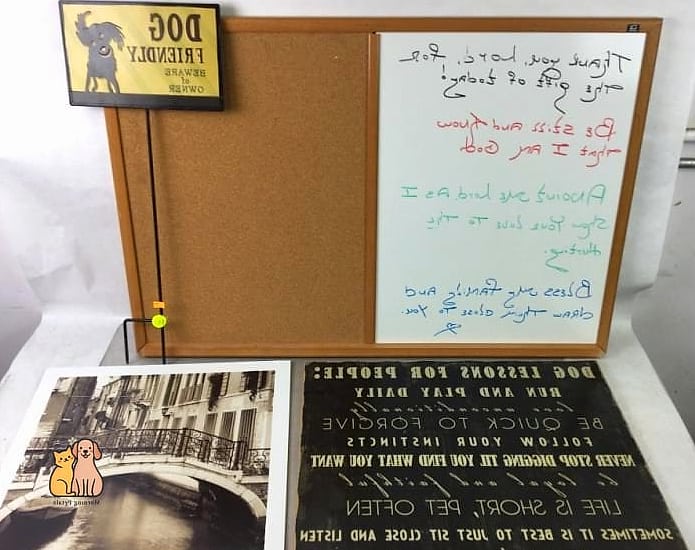 DOG
FRIENDLY
BEWARE
of
OWNER
Thank you, lord, for
the gift of today!
Be still and know
that I am God
Anoint me lord as I
show your love to the
hurting.
Bless my family and
draw them close to you.
DOG LESSONS FOR PEOPLE:
RUN AND PLAY DAILY
love unconditionally
BE QUICK TO FORGIVE
FOLLOW YOUR INSTINCTS
NEVER STOP DIGGING TIL YOU FIND WHAT YOU WANT
be loyal and faithful
LIFE IS SHORT, PET OFTEN
SOMETIMES IT IS BEST TO JUST SIT CLOSE AND LISTEN
Morning Petals